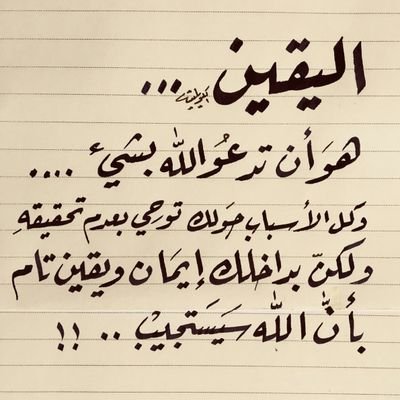 اليقين ...
هوَ أن تدعُو الله بشيء ....
وكل الأسباب حَولك توحي بعدم تحقيقهِ
ولكنّ بداخلك إيمَان ويقين تام
بأنَّ الله سَيَستجيبْ .. !!